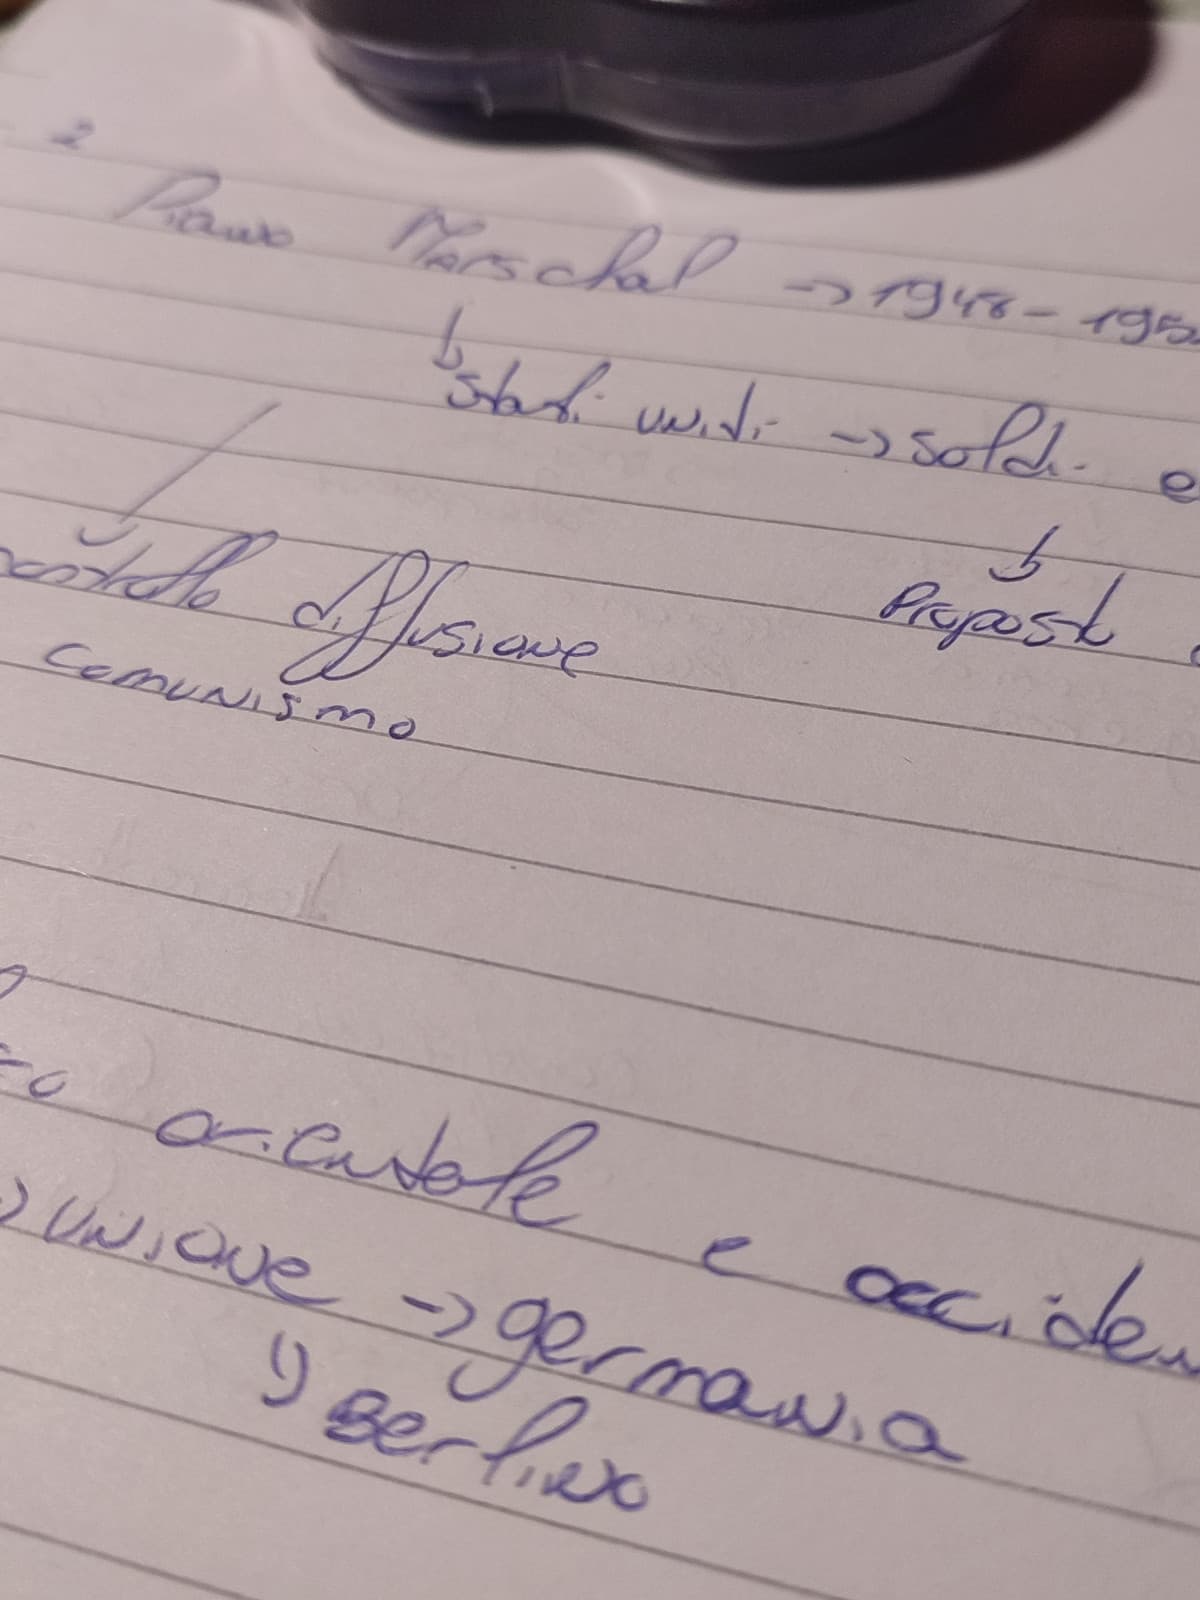 2
Piano Marschal -> 1948-195
Stati uniti -> soldi e
Proposta
diffusione
comunismo
orientale e occiden
-> unione -> germania
Berlino